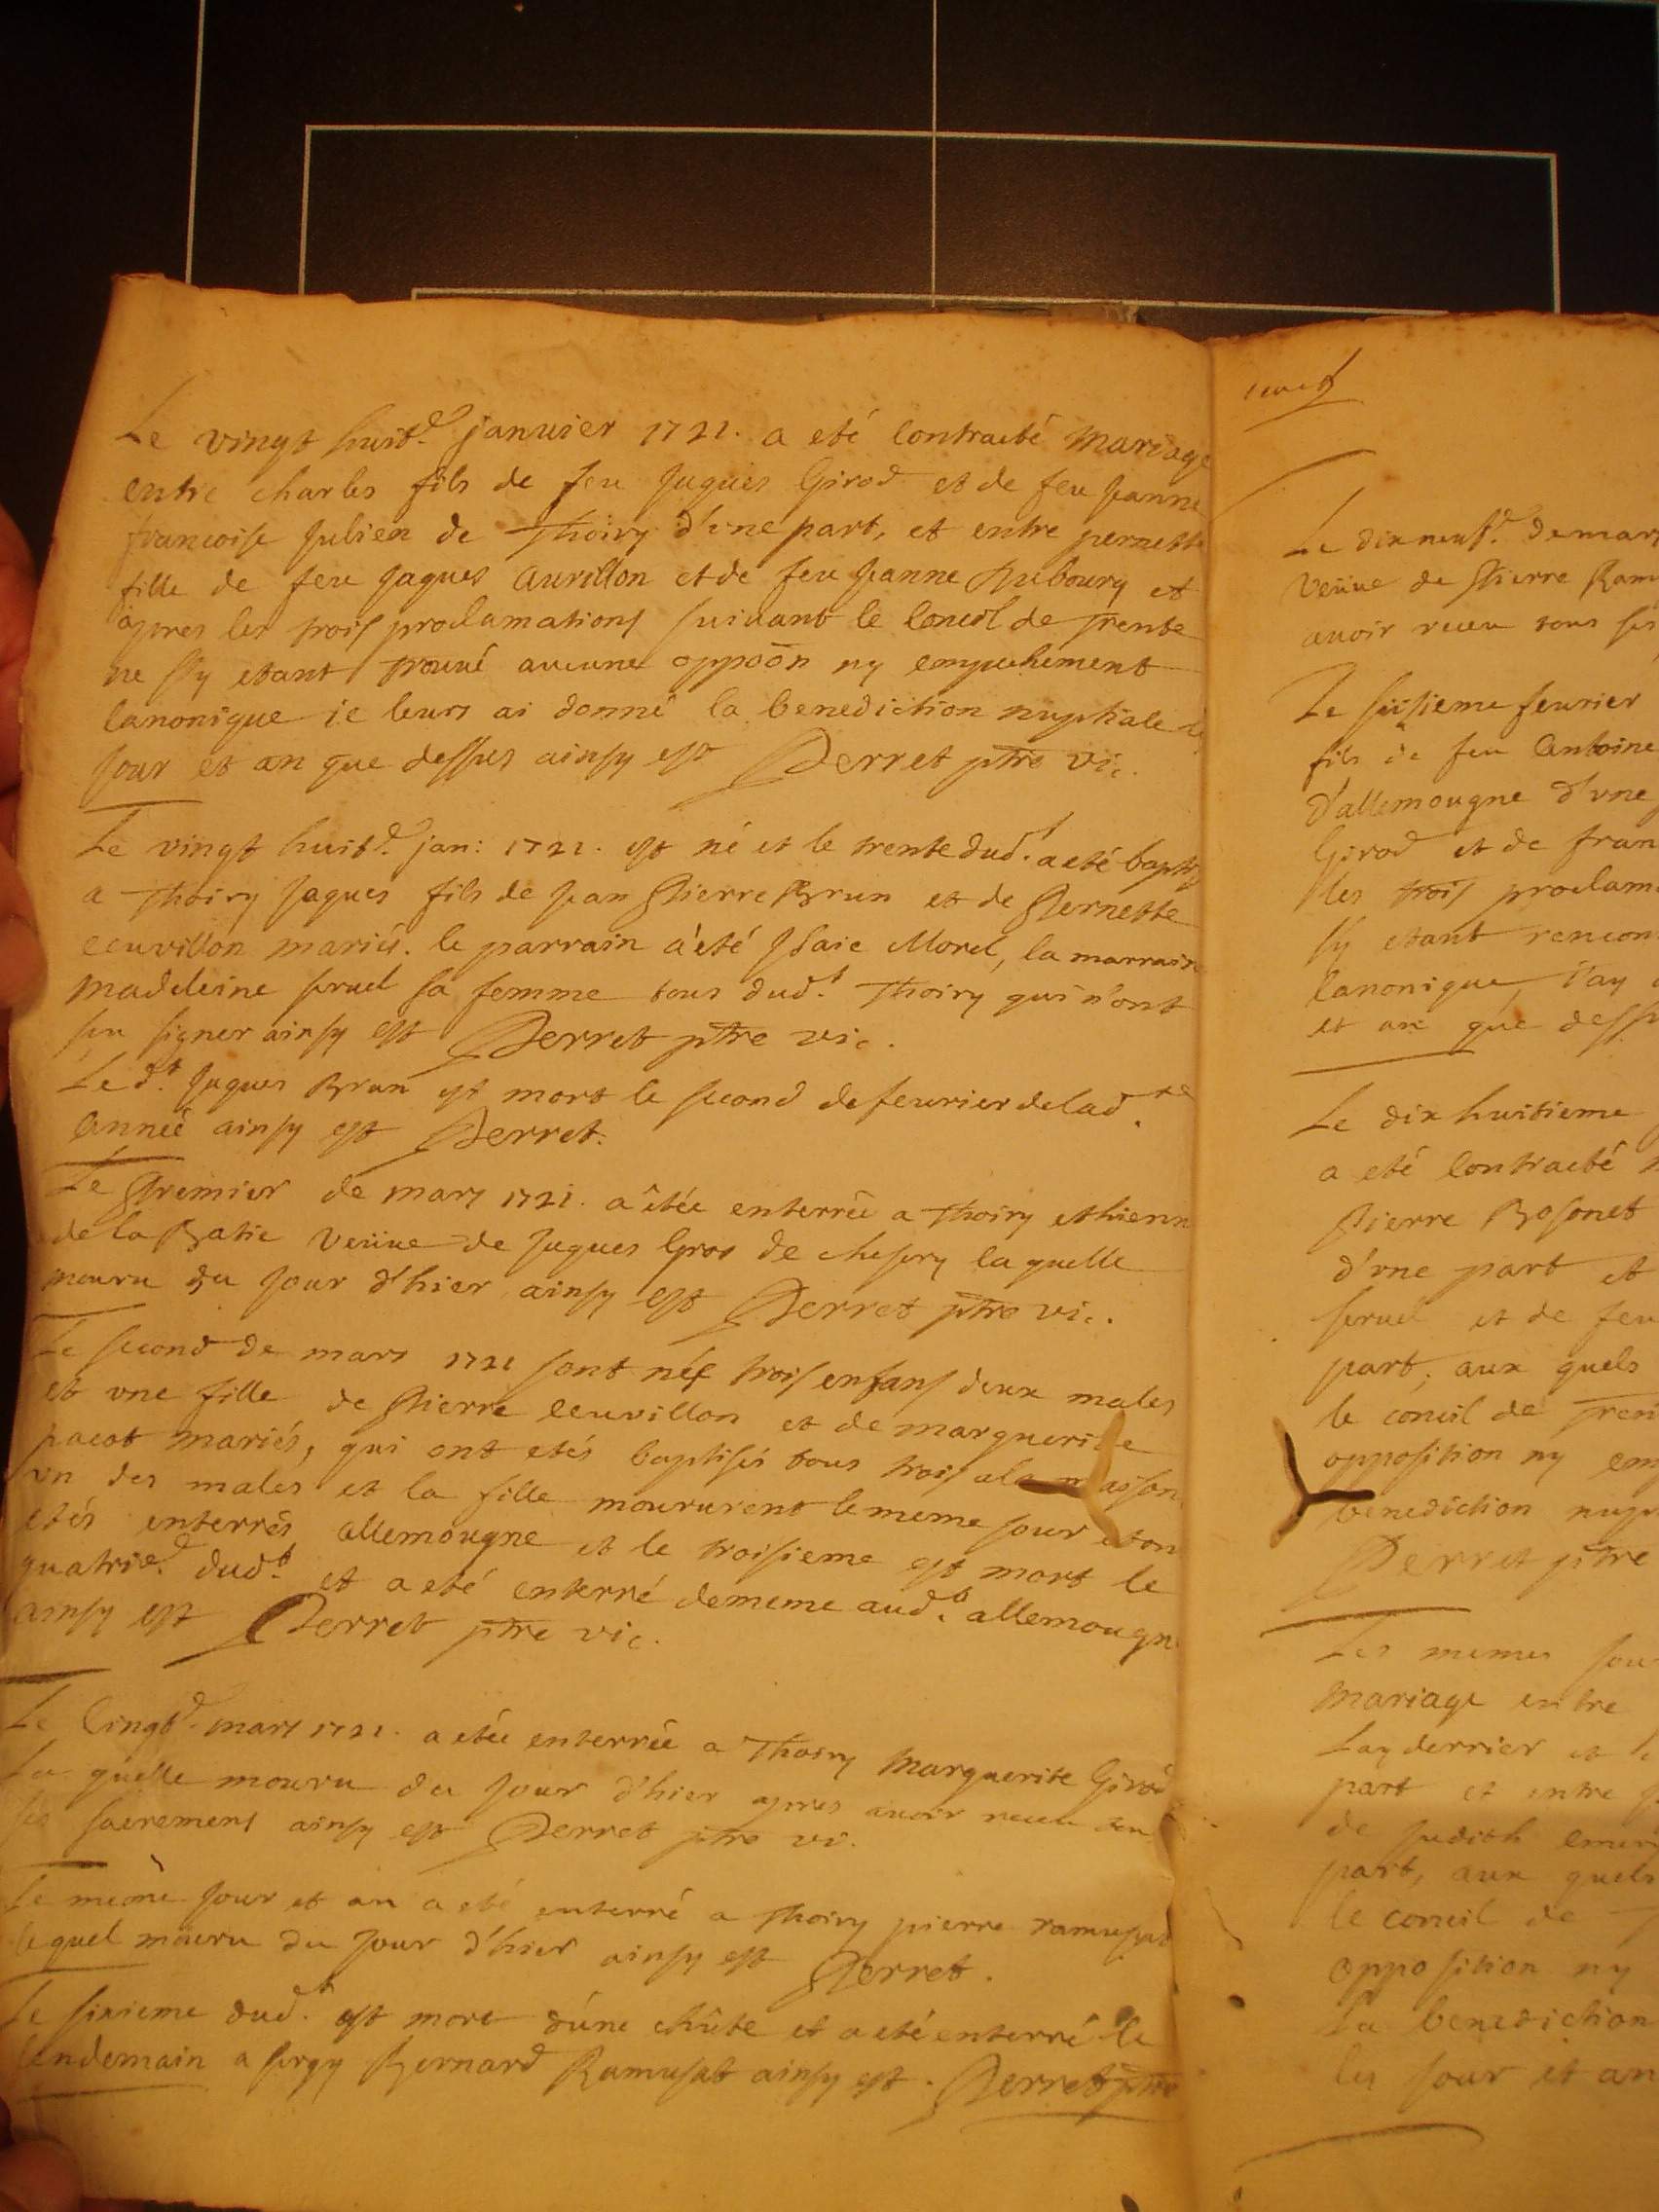 Le vingt huit.e janvier 1721. a eté Contracté Mariage
entre charles fils de feu Jaques Girod et de feu Jeanne
francoise Julien de Thoiry d'vne part, et entre pernette
fille de feu Jaques Aurillon et de feu Jeanne Dubourg et
apres les trois proclamations suiuant le Concil de Trente
ne s'y etant trouué aucune oppoõn ny empechement
Canonique ie leurs ai donné la benediction nuptiale
Jour et an que dessus ainsy est Perret ptre vic.
Le vingt huit.e jan: 1721. est né et le trente dud.t a eté
a Thoiry Jaques fils de Jean Pierre Brun et de Pernette
eeuvillon mariés. le parrain a eté Isaie Morel, la marraine
Madeleine sa femme tous dud.t Thoiry qui n'ont
seu signer ainsy est Perret ptre vic.
Le d.t Jaques Brun est mort le second de feurier de lad.te
Année ainsy est Perret.
Le Premier de mars 1721. a étée enterrée a Thoiry ethienn
de la Batie Veüue de Jaques Gros de chesery la quelle
mouru du Jour d'hier ainsy est Perret ptre vic.
Le second de mars 1721 sont nés trois enfans deux males
et vne fille de Pierre eeuvillon et de marguerite
pacot mariés, qui ont etés baptisés tous trois a la maison
vn des males et la fille moururent le meme Jour et on
etés enterrés allemougne et le troisieme est mort le
quatrie.e dud.t et a eté enterré de meme aud.t allemougn
ainsy est Perret ptre vic.
Le Cinq.e mars 1721. a etée enterrée a Thoiry Marguerite Girod
La quelle mouru du Jour d'hier apres auoir receu
ses sacremens ainsy est Perret ptre vi.
Le meme Jour et an a eté enterré a Thoiry pierre ramusat
lequel mouru du Jour d'hier ainsy est Perret.
Le sixieme dud.t est mort d'une chûte et a eté enterré le
lendemain a sergy Bernard Ramusat ainsy est. Perret ptre
Le dix neuf.e de mars
Veüue de Pierre Ram
auoir receu tous ses
Le feurier
fils de feu Antoine
D'allemougne d'vne
Girod et de fran
les trois proclam
s'y etant rencon
Canonique, i'ay
et an que dess
Le dix huitieme
a eté Contracté
Pierre Rosonet
d'vne part et
et de feu
part, aux quels
le concil de Tren
opposition ny em
benediction nup
Perret ptre
Les memes Jou
Mariage entre
Layderrier et
part et entre
de Judith emer
part, aux quels
le concil de T
opposition ny
La benediction
les Jour et an